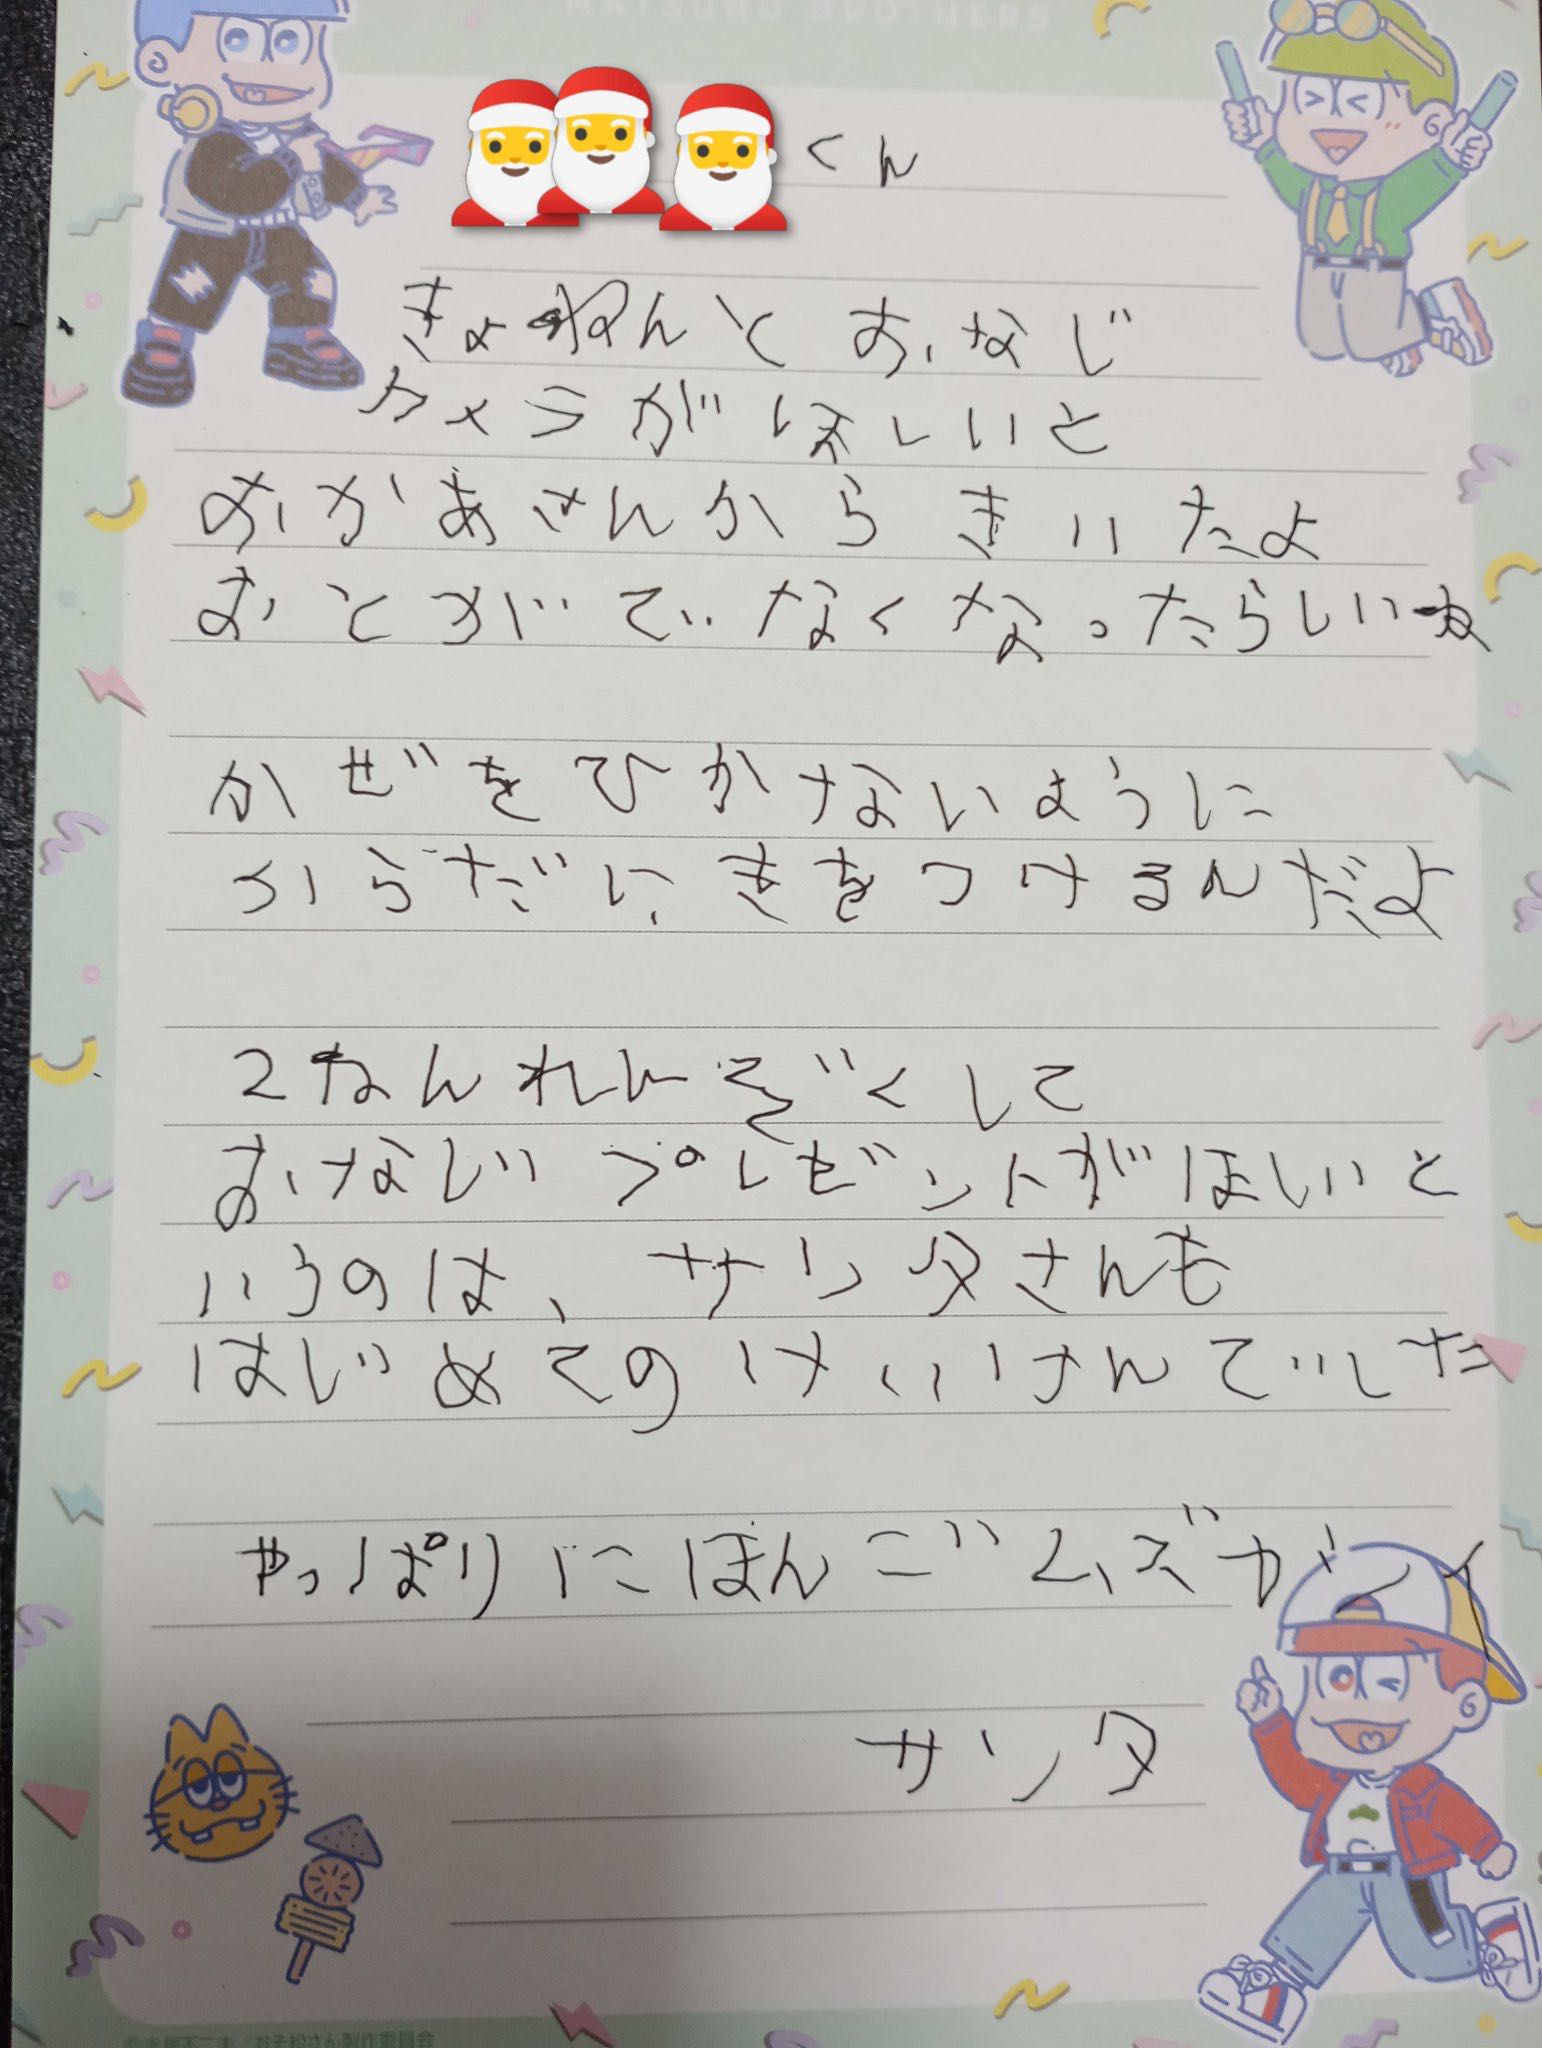 MATSUNO BROTHERS
くん
きょねんと おなじ
カメラがほしいと
おかあさんから きいたよ
おとがでなくなったらしいね
かぜをひかないように
からだにきをつけるんだよ
2ねんれんぞくして
おなじ プレゼントがほしいと
いうのは、サンタさんも
はじめてのけいけんでした
やっぱりにほんごムズカシイ
サンタ
©赤塚不二夫／おそ松さん製作委員会